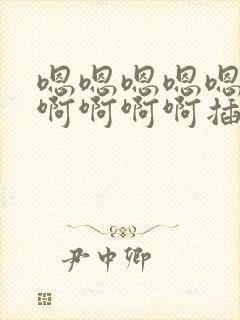 嗯嗯嗯嗯嗯
啊啊啊啊插
尹中卿